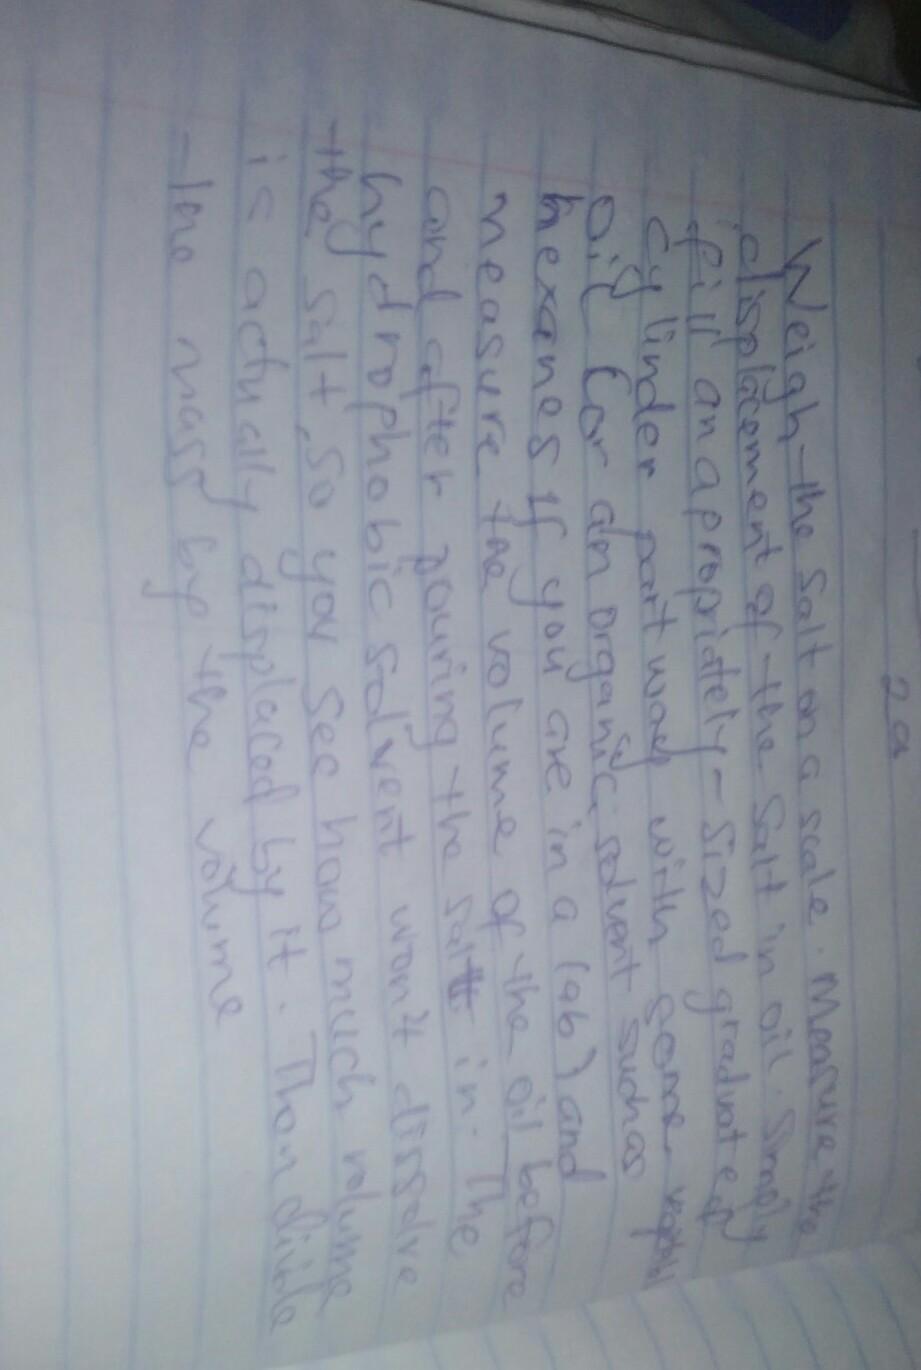 2a
Weigh the salt on a scale. Measure the
displacement of the salt in oil. Simply
fill an apropriately-sized graduated
cylinder part way with some
oil (or an organic solvent such as
hexanes if you are in a lab) and
measure the volume of the oil before
and after pouring the salt in. The
hydrophobic solvent won't dissolve
the salt, so you see how much volume
is actually displaced by it. Then divide
the mass by the volume